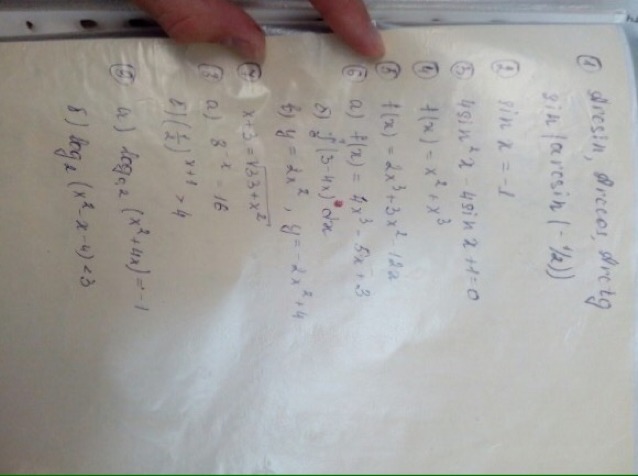 ① Arcsin, Arccos, Arctg
sin(arcsin(-1/2))
② sin x = -1
③ 4sin²x - 4sin x + 1 = 0
④ f(x) = x² + x³
⑤ f(x) = 2x³ + 3x²
⑥ а) f(x) = 4x³ - 5x + 3
б) (3-4x) dx
в) y = 2x², y = -2x² + 4
x-3 = √33+x²
а) 8⁻ˣ = 16
в) (1/2)ˣ⁺¹ > 4
а) log₀,₂ (x²+4x) = -1
б) log₂ (x²-x-4) < 3